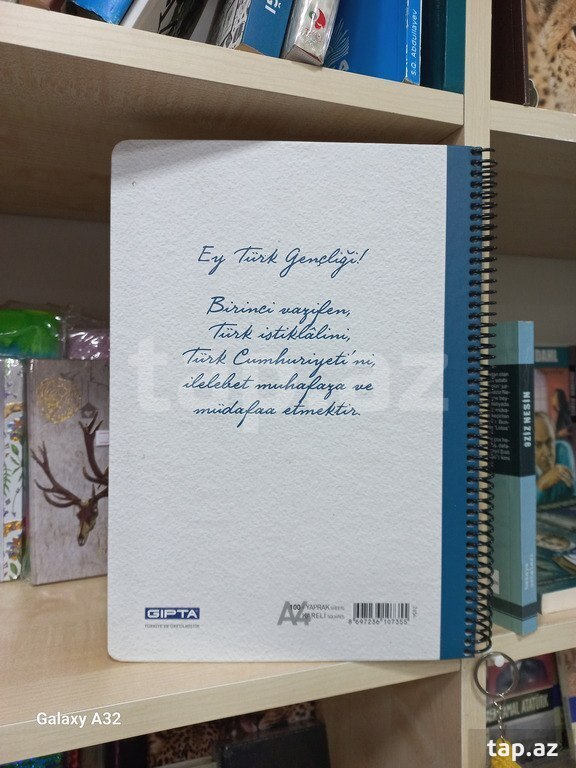 S.Q. Abdullayev
Ey Türk Gençliği!
Birinci vazifen,
Türk istiklâlini,
Türk Cumhuriyeti'ni,
ilelebet muhafaza ve
müdafaa etmektir.
tap.az
ƏZİZ NESİN
GIPTA
TÜRKİYE'DE ÜRETİLMİŞTİR
A4
100 YAPRAK
KARELİ
8 697236 107355
KEMAL ATATÜRK
Galaxy A32
tap.az